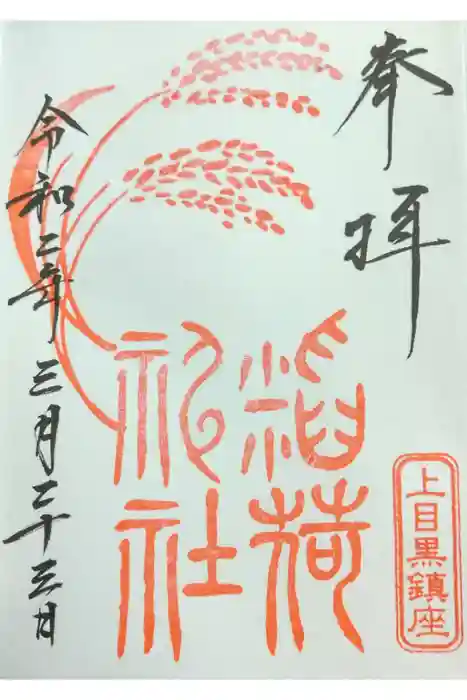 奉拝
稲荷
祀社
上目黒鎮座
令和二年三月二十三日